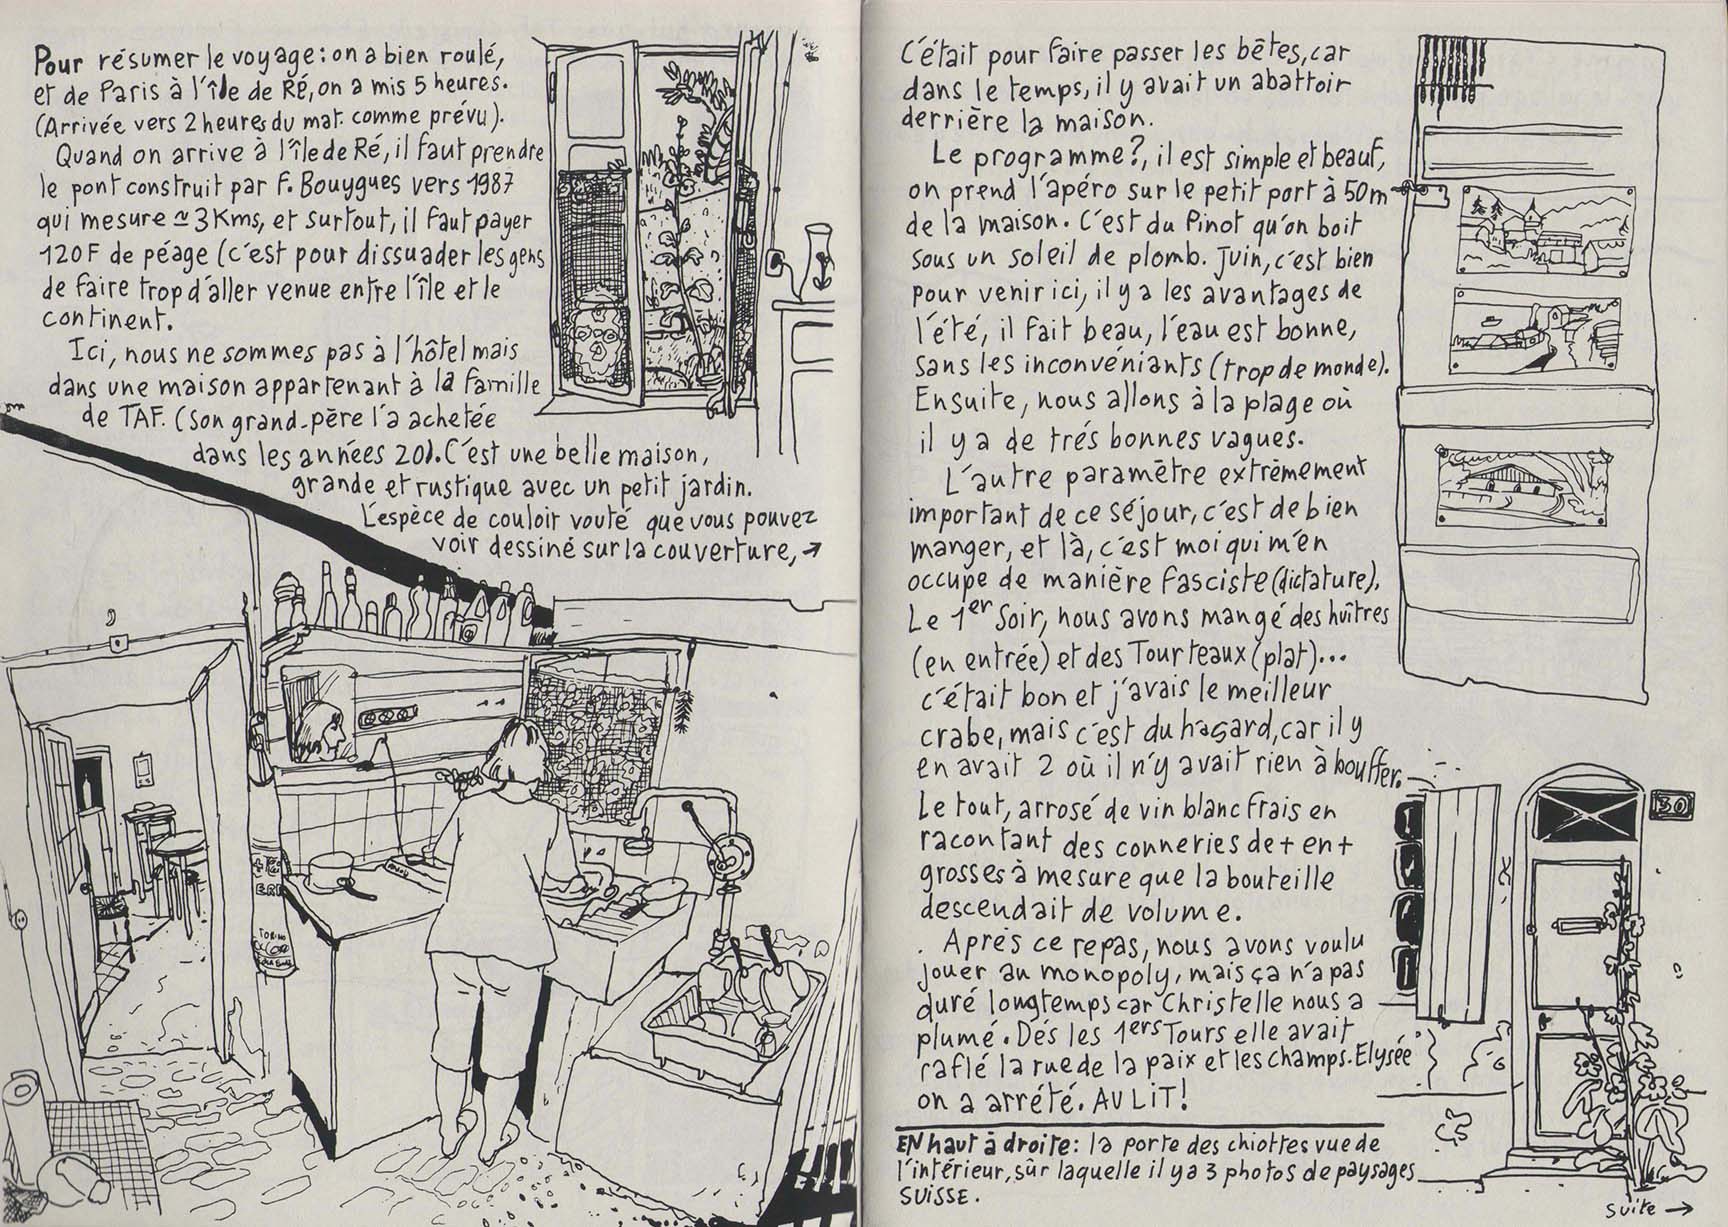 Pour résumer le voyage : on a bien roulé,
et de Paris à l'île de Ré, on a mis 5 heures.
(Arrivée vers 2 heures du mat. comme prévu).
Quand on arrive à l'île de Ré, il faut prendre
le pont construit par F. Bouygues vers 1987
qui mesure ≃ 3 Kms, et surtout, il faut payer
120 F de péage (c'est pour dissuader les gens
de faire trop d'aller venue entre l'île et le
continent.
Ici, nous ne sommes pas à l'hôtel mais
dans une maison appartenant à la famille
de TAF. (Son grand-père l'a achetée
dans les années 20). C'est une belle maison,
grande et rustique avec un petit jardin.
L'espèce de couloir vouté que vous pouvez
voir dessiné sur la couverture, →
TORINO
C'était pour faire passer les bêtes, car
dans le temps, il y avait un abattoir
derrière la maison.
Le programme ?, il est simple et beauf,
on prend l'apéro sur le petit port à 50m
de la maison. C'est du Pinot qu'on boit
sous un soleil de plomb. Juin, c'est bien
pour venir ici, il y a les avantages de
l'été, il fait beau, l'eau est bonne,
sans les inconvéniants (trop de monde).
Ensuite, nous allons à la plage où
il y a de trés bonnes vagues.
L'autre paramètre extrèmement
important de ce séjour, c'est de bien
manger, et là, c'est moi qui m'en
occupe de manière fasciste (dictature).
Le 1er soir, nous avons mangé des huîtres
(en entrée) et des Tourteaux (plat)...
c'était bon et j'avais le meilleur
crabe, mais c'est du hasard, car il y
en avait 2 où il n'y avait rien à bouffer.
Le tout, arrosé de vin blanc frais en
racontant des conneries de + en +
grosses à mesure que la bouteille
descendait de volume.
Après ce repas, nous avons voulu
jouer au monopoly, mais ça n'a pas
duré longtemps car Christelle nous a
plumé. Dés les 1ers Tours elle avait
raflé la rue de la paix et les champs. Elysée
on a arrété. AU LIT !
30
EN haut à droite : la porte des chiottes vue de
l'intérieur, sur laquelle il y a 3 photos de paysages
SUISSE.
suite →